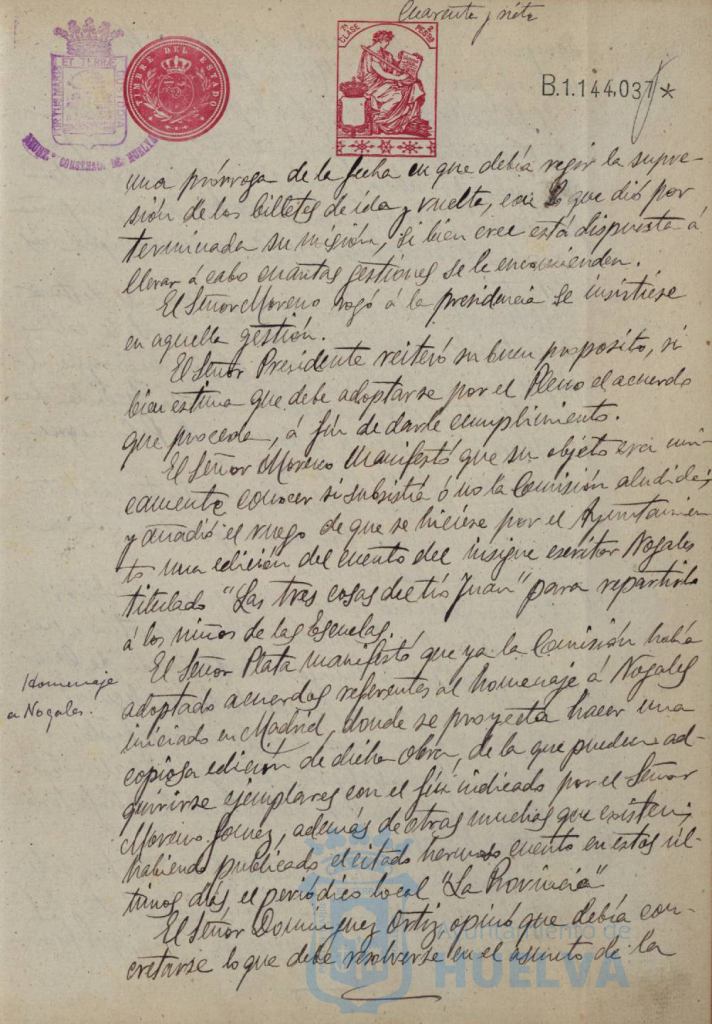 Cuarenta y siete
PORTUS MARIS ET TERRÆ CUSTODIA
AYUNT.º CONSTNAL. DE HUELVA
TIMBRE DEL ESTADO
1ª CLASE
PESETAS
B.1.144.037 *
una prórroga de la fecha en que debía regir la supre-
sión de los billetes de ida y vuelta, con lo que dió por
terminada su misión, si bien cree está dispuesta á
llevar á cabo cuantas gestiones se le encomienden.
El Señor Moreno rogó á la presidencia se insistiese
en aquella gestión.
El Señor Presidente reiteró su buen proposito, si
bien estima que debe adoptarse por el Pleno el acuerdo
que proceda, á fin de darle cumplimiento.
El Señor Moreno manifestó que su objeto era uni-
camente conocer si subsistía ó no la Comisión aludida;
y añadió el ruego de que se hiciese por el Ayuntamien
to una edición del cuento del insigne escritor Nogales
titulado "Las tres cosas del tío Juan" para repartirlo
á los niños de las Escuelas.
Homenaje
a Nogales.
El Señor Plata manifestó que ya la Comisión había
adoptado acuerdos referentes al homenaje á Nogales
iniciado en Madrid, donde se proyecta hacer una
copiosa edición de dicha obra, de la que pueden ad-
quirirse ejemplares con el fin indicado por el Señor
Moreno Gomez, además de otras muchas que existen;
habiendo publicado el citado hermoso cuento en estos úl-
timos días, el periódico local "La Provincia"
El Señor Dominguez Ortiz opinó que debía con-
cretarse lo que debe resolverse en el asunto de la
Ayuntamiento de
HUELVA